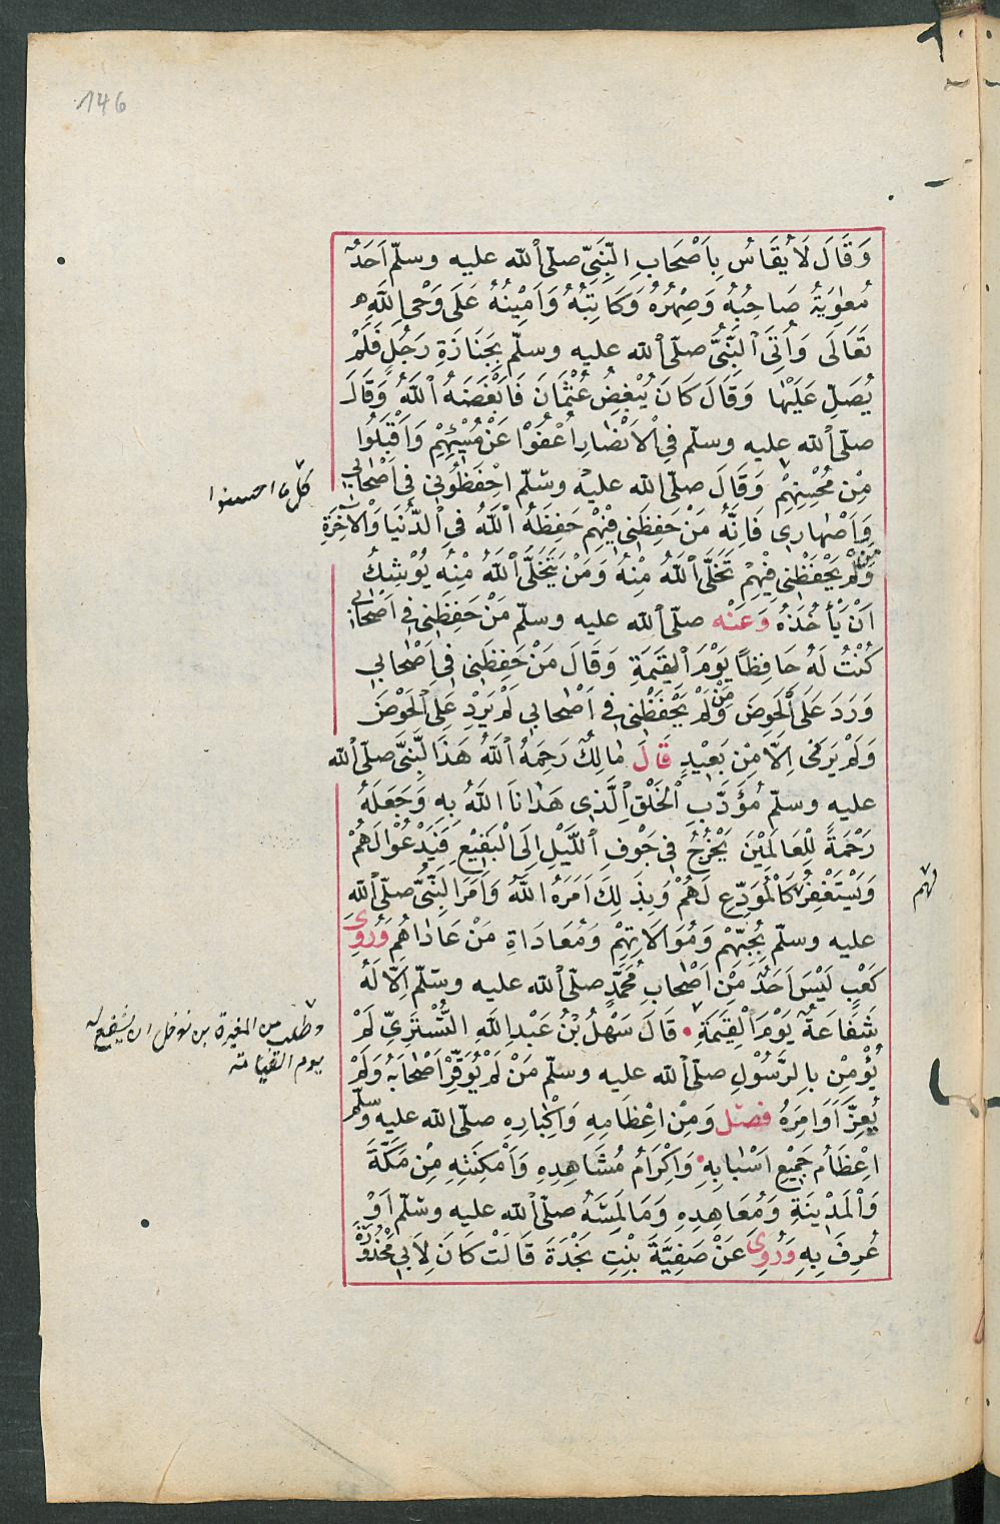 146
وَقَالَ لَا يُقَاسُ بِاَصْحَابِ النَّبِيِّ صلّى الله عليه وسلّم اَحَدٌ
مُعٰوِيَةُ صَاحِبُهُ وَصِهْرُهُ وَكَاتِبُهُ وَاَمِيْنُهُ عَلَى وَحْىِ اللّٰهِ
تَعَالَى وَأُتِىَ النَّبِىُّ صلّى الله عليه وسلّم بِجَنَازَةِ رَجُلٍ فَلَمْ
يُصَلِّ عَلَيْهَا وَقَالَ كَانَ يُبْغِضُ عُثْمَانَ فَاَبْغَضَهُ اللّٰهُ وَقَالَ
صلّى الله عليه وسلّم فِى الْاَنْصَارِ اُعْفُوْا عَنْ مُسِيْئِهِمْ وَاقْبَلُوا
مِنْ مُحْسِنِهِمْ وَقَالَ صلّى الله عليه وسلّم احْفَظُوْنِى فِى اَصْحَابِى
وَاَصْهَارِى فَاِنَّهُ مَنْ حَفِظَنِى فِيْهِمْ حَفِظَهُ اللّٰهُ فِى الدُّنْيَا وَالْاٰخِرَةِ
وَمَنْ لَمْ يَحْفَظْنِى فِيْهِمْ تَخَلَّى اللّٰهُ مِنْهُ وَمَنْ يَتَخَلَّى اللّٰهُ مِنْهُ يُوْشِكُ
اَنْ يَأْخُذَهُ وَعَنْه صلّى الله عليه وسلّم مَنْ حَفِظَنِى فِى اَصْحَابِى
كُنْتُ لَهُ حَافِظًا يَوْمَ الْقِيٰمَةِ وَقَالَ مَنْ حَفِظَنِى فِى اَصْحَابِى
وَرَدَ عَلَى الْحَوضَ وَمَنْ لَمْ يَحْفَظْنِى فِى اَصْحَابِى لَمْ يَرِدْ عَلَى الْحَوْضَ
وَلَمْ يَرَنِى اِلَّا مِنْ بَعِيْدٍ قَالَ مَالِكٌ رَحِمَهُ اللّٰهُ هَذَا النَّبِىُّ صلّى الله
عليه وسلّم مُؤَدِّبِ الْخَلْقِ الَّذِى هَدٰانَا اللّٰهُ بِهِ وَجَعَلَهُ
رَحْمَةً لِلْعَالَمِيْنَ يَخْرُجُ فِى جَوْفِ اللَّيْلِ اِلَى الْبَقِيْعِ فَيَدْعُوْا لَهُمْ
وَيَسْتَغْفِرُ كَالْمُوَدِّعِ لَهُمْ وَبِذَلِكَ اَمَرَهُ اللّٰهُ وَاَمَرَ النَّبِىُّ صلّى الله
عليه وسلّم بِحُبِّهِمْ وَمُوَالَاتِهِمْ وَمُعَادَاةِ مَنْ عَادَاهُمْ وَرُوِىَ
كَعْبٍ لَيْسَ اَحَدٌ مِنْ اَصْحَابِ مُحَمَّدٍ صلّى الله عليه وسلّم اِلَّا لَهُ
شَفَاعَةٌ يَوْمَ الْقِيٰمَةِ • قَالَ سَهْلُ بْنُ عَبْدِ اللّٰهِ التُّسْتَرِىّ لَمْ
يُؤْمِنْ بِالرَّسُوْلِ صلّى الله عليه وسلّم مَنْ لَمْ يُوَقِّرْ اَصْحَابَهُ وَلَمْ
يُعِزَّ اَوَامِرَهُ فصل وَمِنْ اِعْظَامِهِ وَاِكْبَارِهِ صلّى الله عليه وسلّم
اِعْظَامُ جَمِيْعِ اَسْبَابِهِ • وَاِكْرَامُ مُشَاهِدِهِ وَاَمْكِنَتِهِ مِنْ مَكَّةَ
وَالْمَدِيْنَةِ وَمَعَاهِدِهِ وَمَا لَمَسَهُ صلّى الله عليه وسلّم اَوْ
عُرِفَ بِهِ وَرُوِىَ عَنْ صَفِيَّةَ بِنْتِ نَجْدَةَ قَالَتْ كَانَ لِاَبِى مَحْذُوْرَةَ
لهم
وطلب من المغيرة بن نوفل ان يشفع له
يوم القيامة